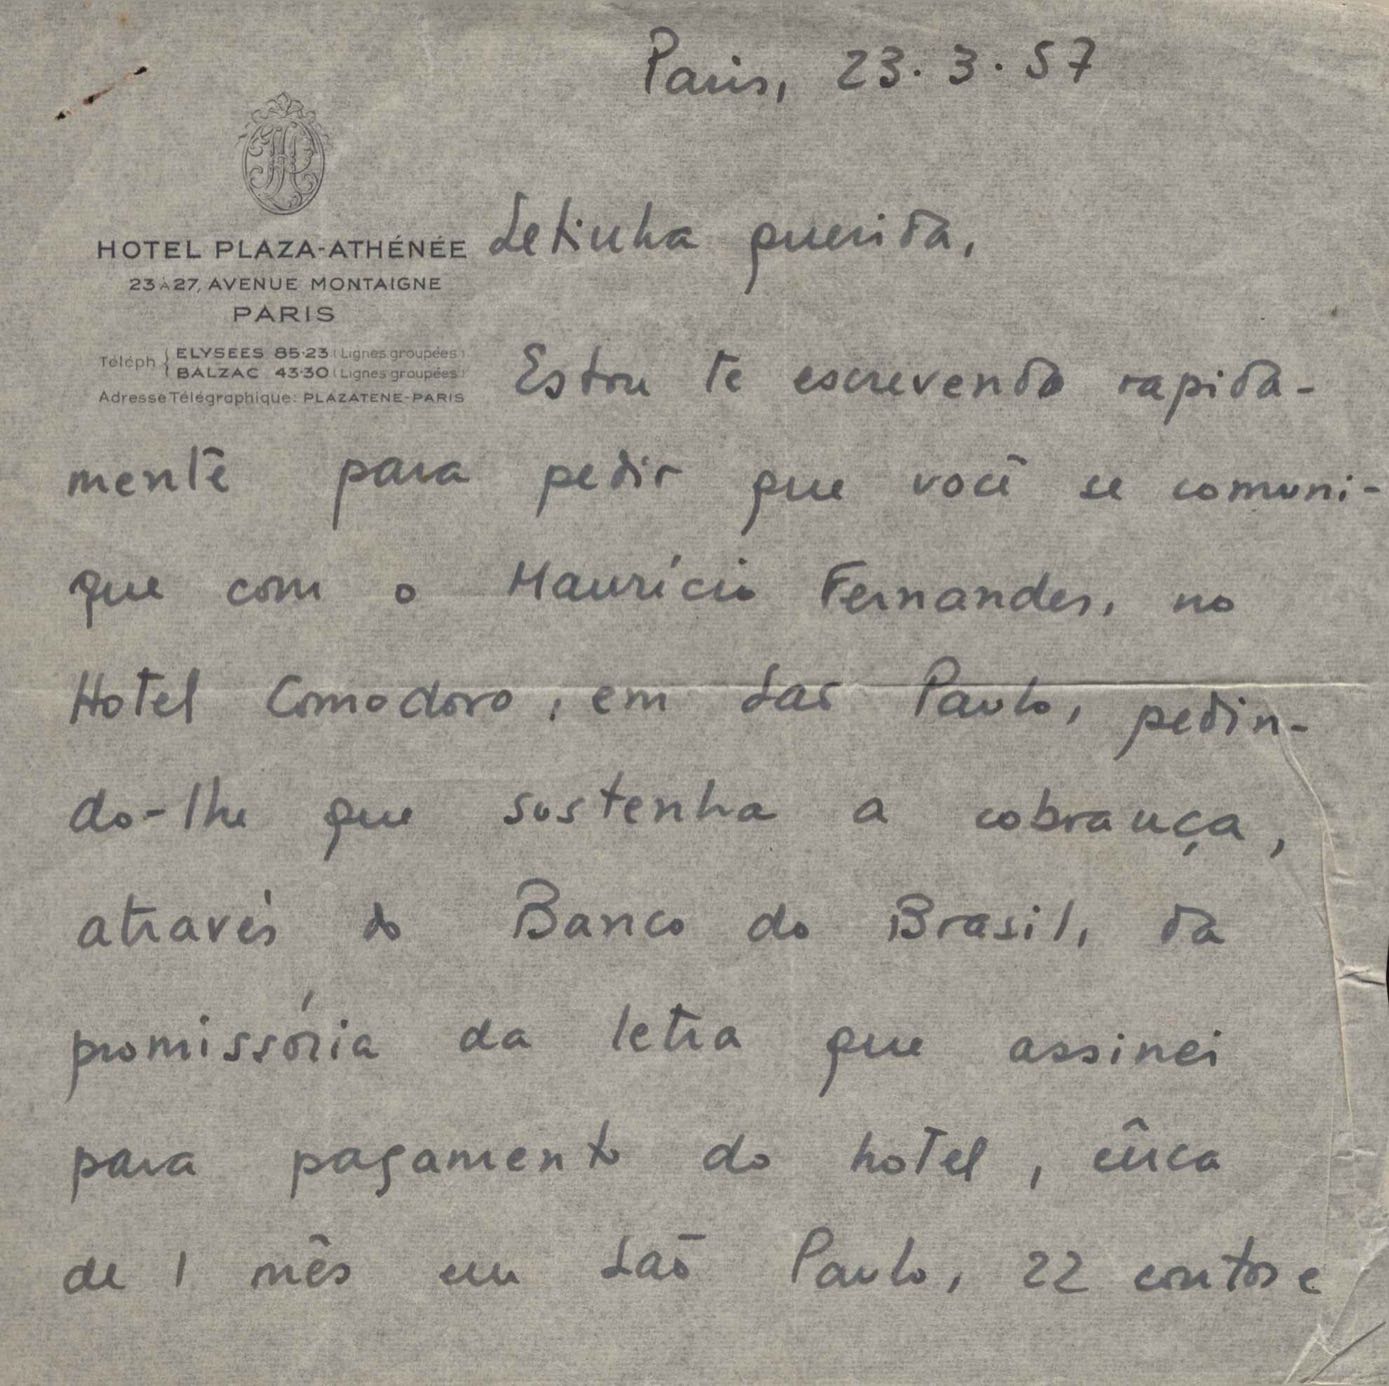 Paris, 23.3.57
HOTEL PLAZA-ATHÉNÉE
23 À 27, AVENUE MONTAIGNE
PARIS
Téléph { ELYSEES 85-23 (Lignes groupées)
BALZAC 43-30 (Lignes groupées)
Adresse Télégraphique: PLAZATENE-PARIS
Letinha querida,
Estou te escrevendo rapida-
mente para pedir que você se comuni-
que com o Maurício Fernandes, no
Hotel Comodoro, em São Paulo, pedin-
do-lhe que sustenha a cobrança,
através do Banco do Brasil, da
promissória da letra que assinei
para pagamento do hotel, cêrca
de 1 mês em São Paulo, 22 contos e